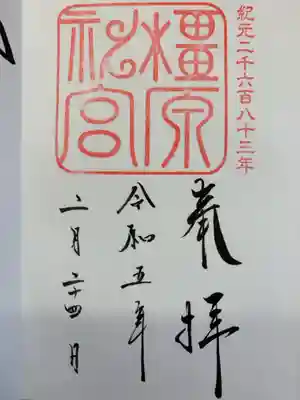 紀元二千六百八十三年
橿原神宮
奉拝
令和五年
二月二十四月